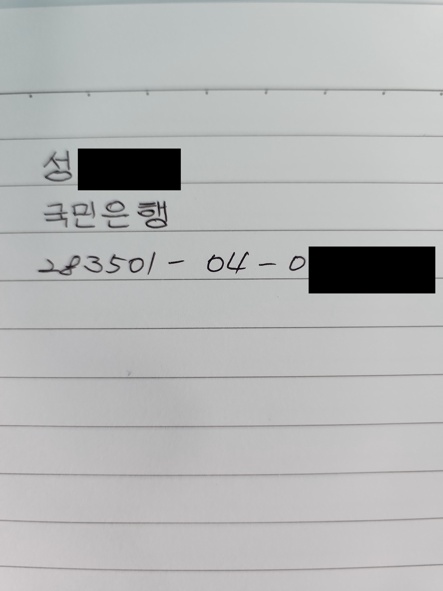 성
국민은행
283501- 04-0